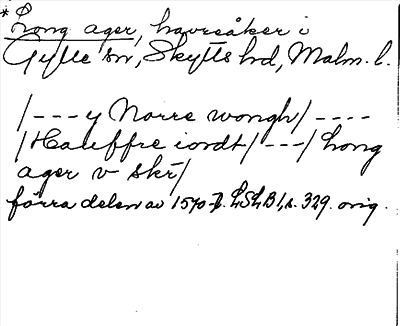 *Long ager, havreåker i
Gylle sn, Skytts hd, Malm. l.
/---y Norre wongh/----
/Hauffre iordt/---/ Long
ager v skr/
förra delen av 1570-t. LSLB1, s. 329. orig.